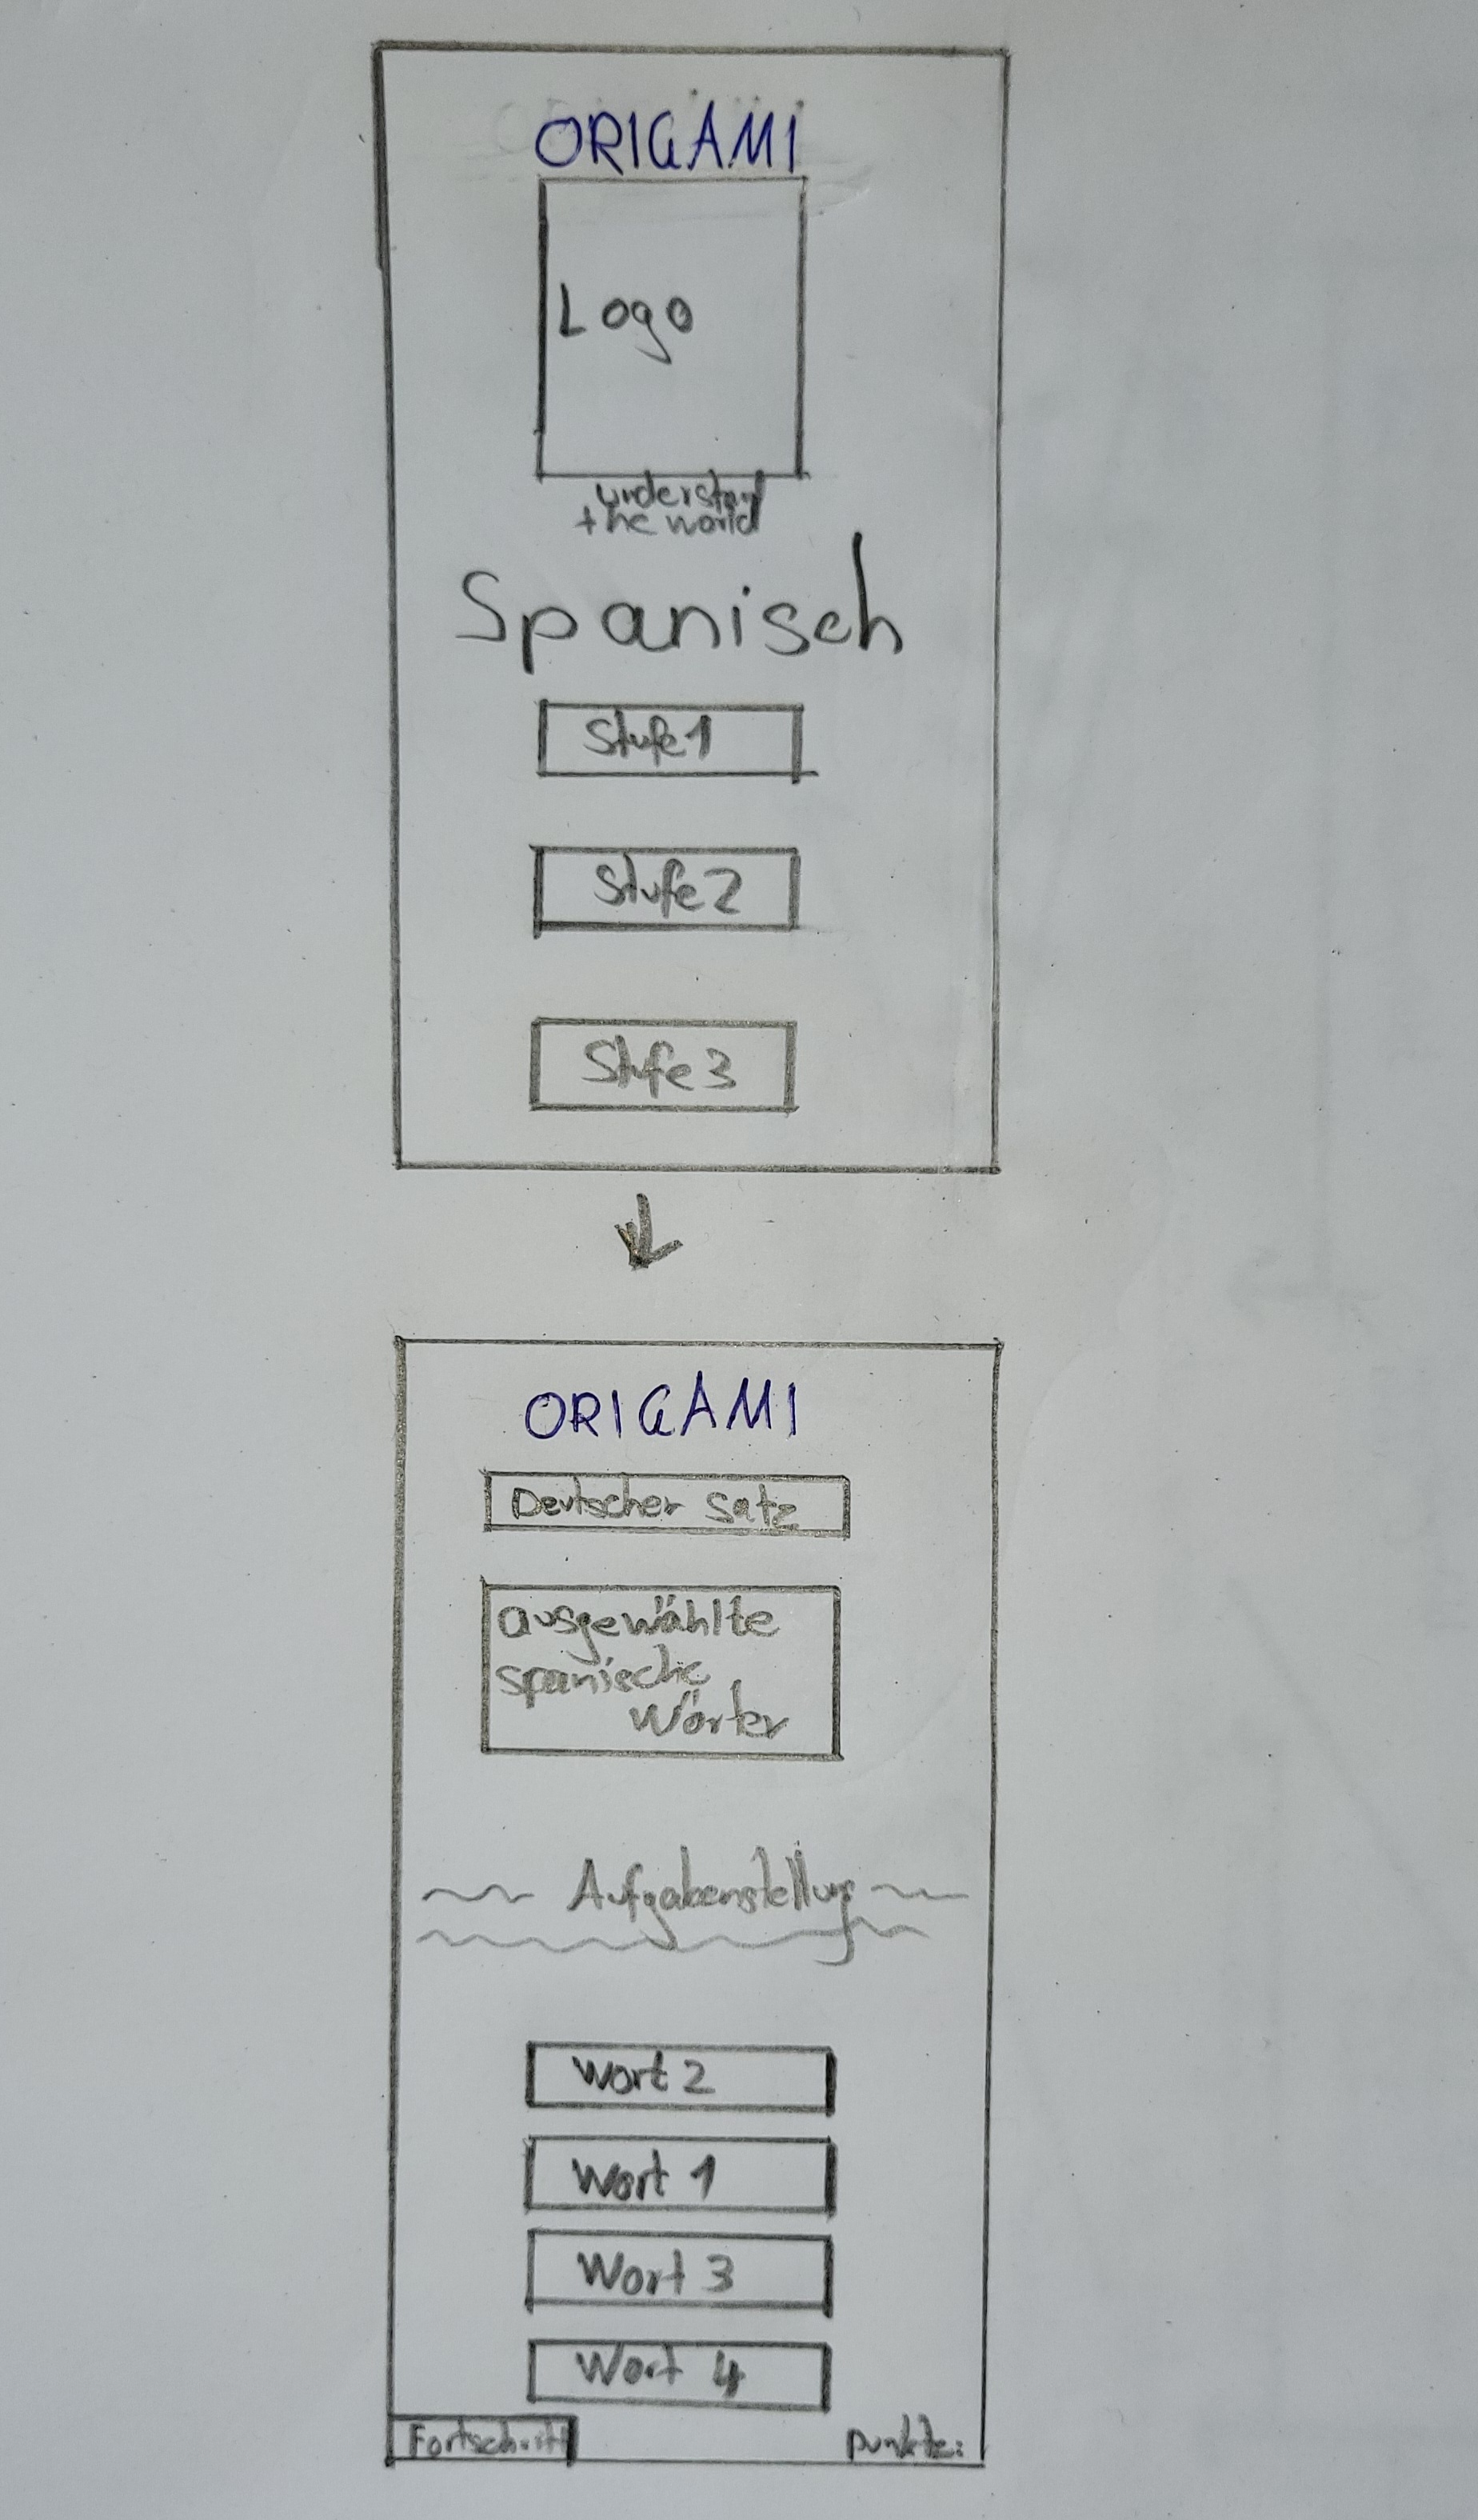 ORIGAMI
Logo
understand
the world
Spanisch
Stufe 1
Stufe 2
Stufe 3
ORIGAMI
Deutscher Satz
ausgewählte
spanische
Wörter
Aufgabenstellung
Wort 2
Wort 1
Wort 3
Wort 4
Fortschritt
Punkte: